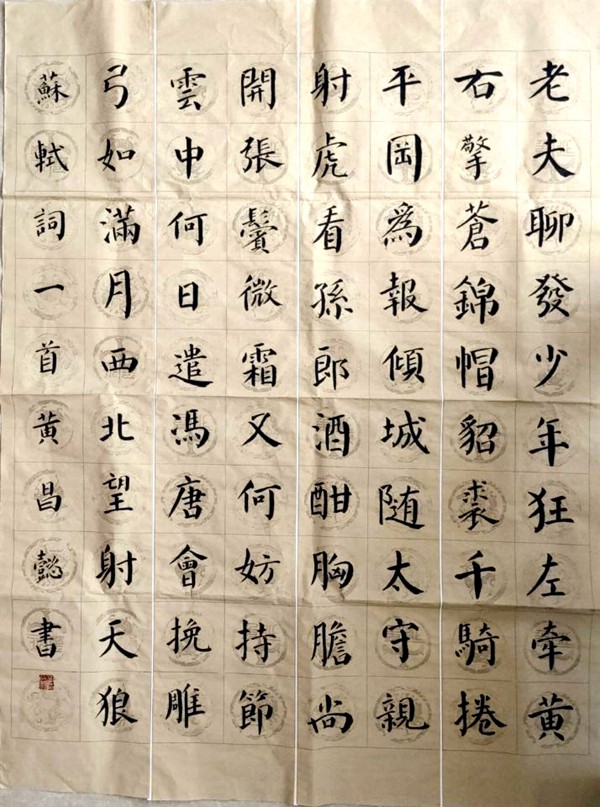 老夫聊發少年狂左牽黃
右擎蒼錦帽貂裘千騎捲
平岡為報傾城随太守親
射虎看孫郎酒酣胸膽尚
開張鬢微霜又何妨持節
雲中何日遣馮唐會挽雕
弓如滿月西北望射天狼
蘇軾詞一首黄昌懿書